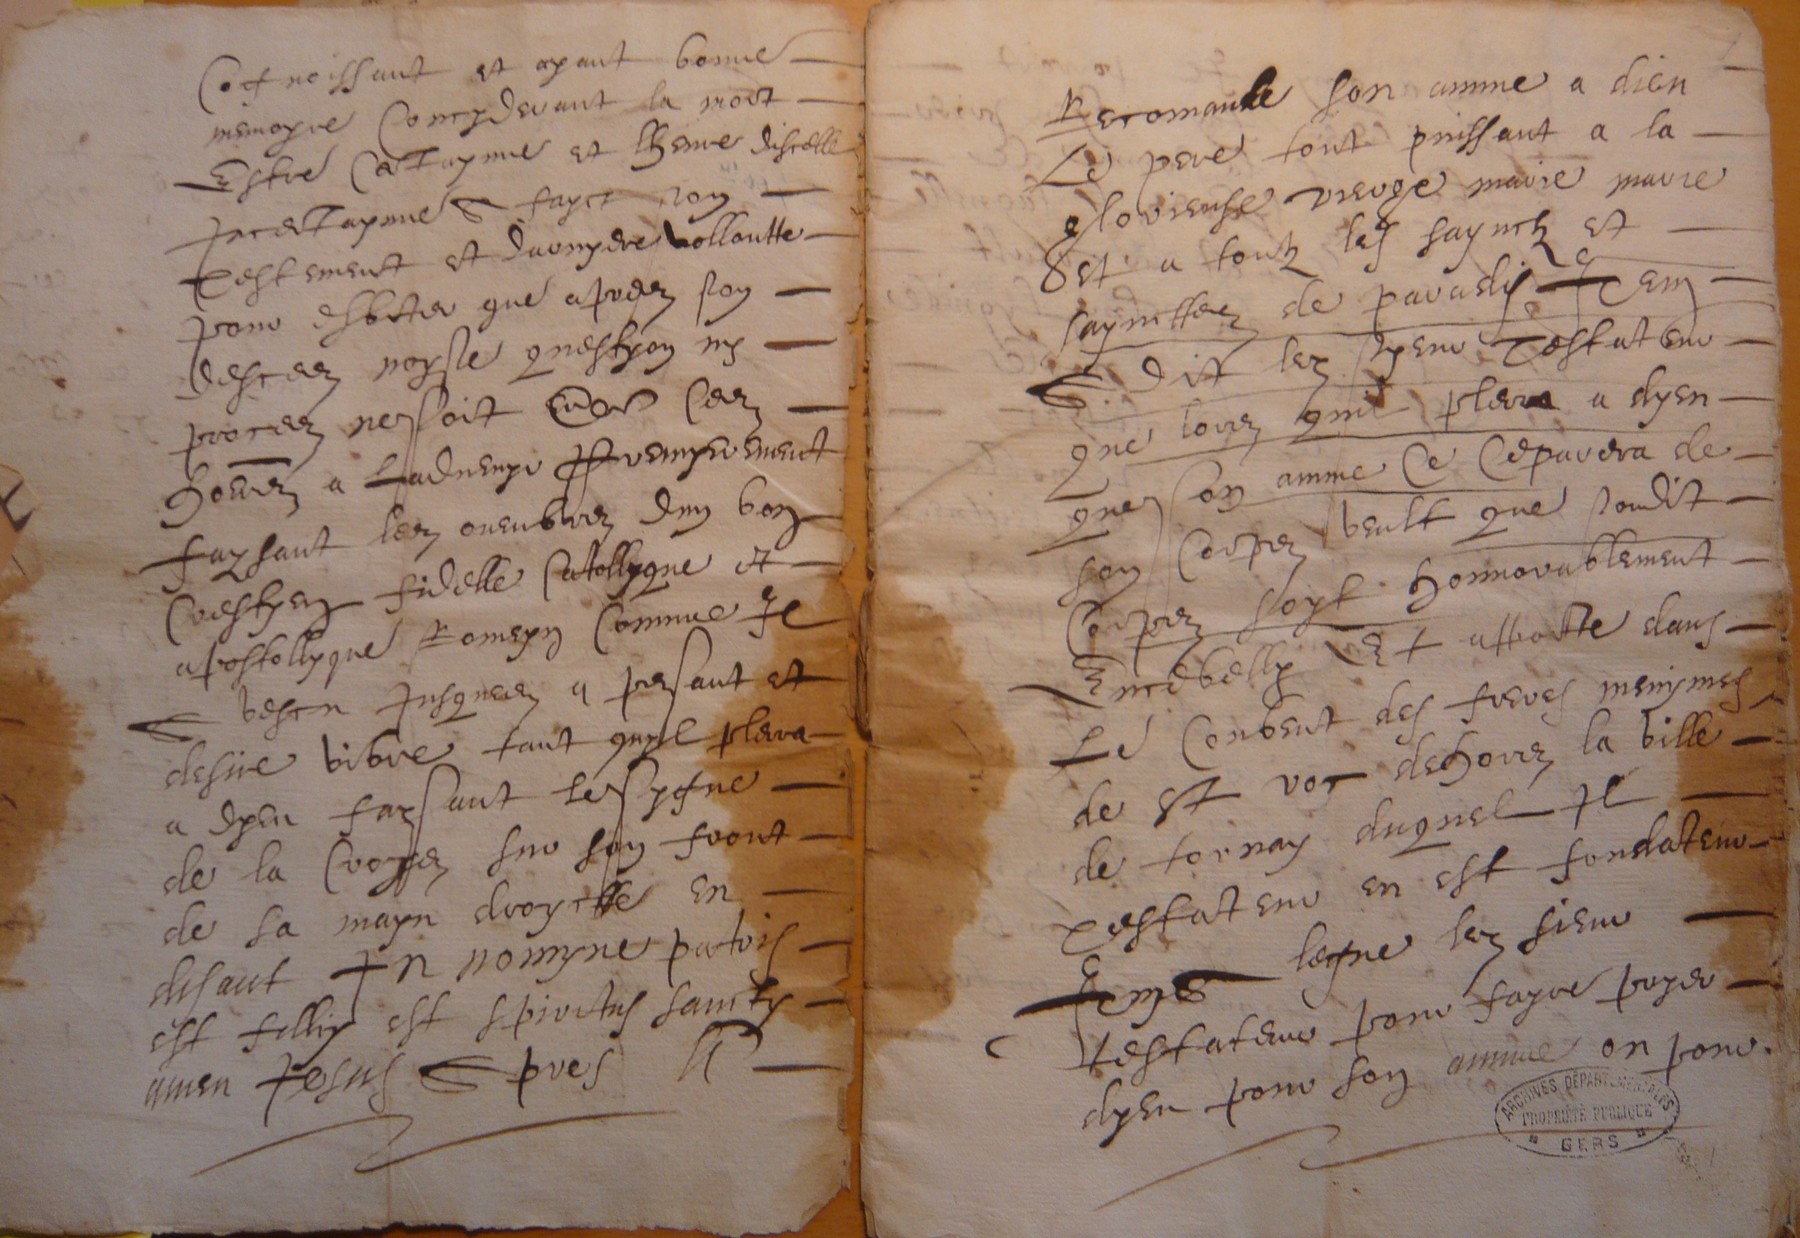 Cognoissant et ayant bonne
memoyre Concyderant la mort
Estre Certayne et lheure discelle
Incertayne A fayct son
Testement et darnyere vollontte
pour esbiter que apres son
desces noysse questyon ny
proces ne soit Entre Ces
hoires a Ladvenyr Premyerement
faysant les oeuvbres dun bon
Crestyen fidelle Catollyque et
apostollyque Romeyn Comme Il
A vescu Jusques a presant et
desire vibre tant quyl plerra
a dyeu faysant le sygne
de la Croys sur son front
de sa mayn droycte en
disant In nomyne patris
est fillii est spiritus sancty
amen Jesus Apres A
Recomande son amme a dieu
Le pere tout puissant a la
glorieuse vierge marie mavre
Et a toutz les sayntz et
sayncttes de paradis Item
A dit les syeur Testateur
que lorz quil plerra a dyeu
que son amme Ce Cepavera de
son Corpes veult que sondit
Corpes soyt honnorablement
Encebelly Et apportte dans
Le Convent des freres menymes
de est roc dehores la ville
de tornay duquel Il
Testateur en est fondateur
Item legue les sieur
testateur pour fayre pryer
dyeu pour son amme on pour
ARCHIVES DÉPARTEMENTALES
PROPRIÉTÉ PUBLIQUE
GERS